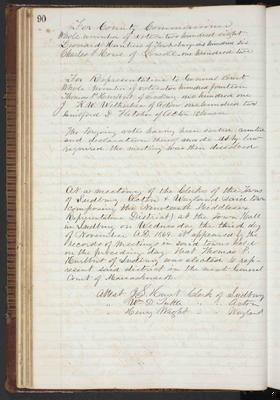 90
For County Commissioner
Whole number of votes two hundred eight
Leonard Huntress of Tewksbury one hundred six
Charles S. Rouse of Lowell one hundred two
For Representative to General Court
Whole number of votes two hundred fourteen
Thomas P. Hurlbut of Sudbury one hundred one
J. K. W. Wetherbee of Acton one hundred two
Fletcher of Acton Eleven
The foregoing votes having been sorted, counted
and declaration thereof made as by law
required the meeting was then dissolved
At a meeting of the Clerks of the Towns
of Sudbury Acton & Wayland said towns
composing the Nineteenth Middlesex
Representative District, at the Town Hall
in Sudbury on Wednesday the third day
of November A.D. 1869. it appeared by the
records of Meetings in said towns held
on the preceding day That Thomas P.
Hurlbut of Sudbury was elected to rep-
resent said district in the next General
Court of Massachusetts.
Attest J. S. Hunt Clerk of Sudbury
" Wm. D. Tuttle " " Acton
" Henry Wight " " Wayland